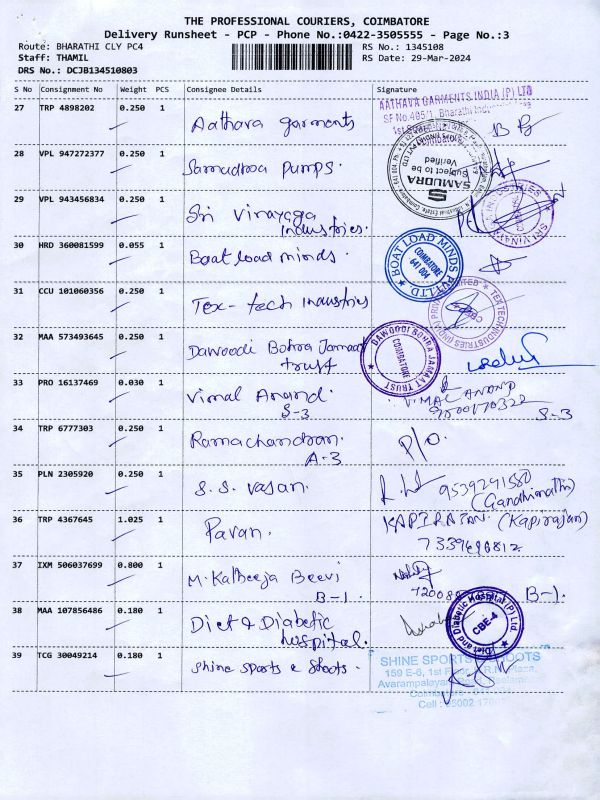 THE PROFESSIONAL COURIERS, COIMBATORE
Delivery Runsheet - PCP - Phone No.:0422-3505555 - Page No.:3
Route: BHARATHI CLY PC4
RS No.: 1345108
Staff: THAMIL
RS Date: 29-Mar-2024
DRS No.: DCJB134510803
S No Consignment No Weight PCS Consignee Details Signature
27 TRP 4898202 0.250 1 Aathava garments
AATHAVA GARMENTS INDIA (P) LTD
SF No.405/1, Bharathi
28 VPL 947272377 0.250 1 Samudraa Pumps.
SAMUDRA
Subject to be
Verified
29 VPL 943456834 0.250 1 Sri Vinayaga
industries.
30 HRD 360081599 0.055 1 Boat load minds.
BOAT LOAD MINDS PVT LTD
COIMBATORE
641 004
31 CCU 101060356 0.250 1 Tex-tech industries
TEX TECH INDUSTRIES (INDIA) PRIVATE LIMITED
CBE
32 MAA 573493645 0.250 1 Dawoodi Bohra Jamaat
trust
DAWOODI BOHRA JAMAAT TRUST
COIMBATORE
33 PRO 16137469 0.030 1 Vimal Anand.
S-3
VIMAL ANAND
S-3
34 TRP 6777303 0.250 1 Ramachandran.
A-3
P/O.
35 PLN 2305920 0.250 1 S.S. Vasan.
9539291580
(Gandhimathi)
36 TRP 4367645 1.025 1 Pavan.
KAPIRAJAN. (Kapirajan)
37 IXM 506037699 0.800 1 M. Katheeja Beevi
B-1.
B-1.
38 MAA 107856486 0.180 1 Diet & Diabetic
hospital.
Diet and Diabetic Hospital (P) Ltd
CBE-4
39 TCG 30049214 0.180 1 Shine sports & Shoots.
SHINE SPORTS
159 E-6, 1st
Avarampalayam
Cell :